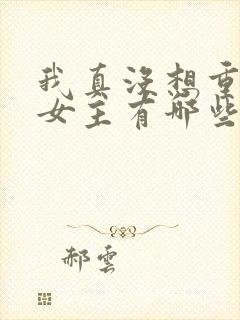 我真没想重
女主有哪些
郝雲